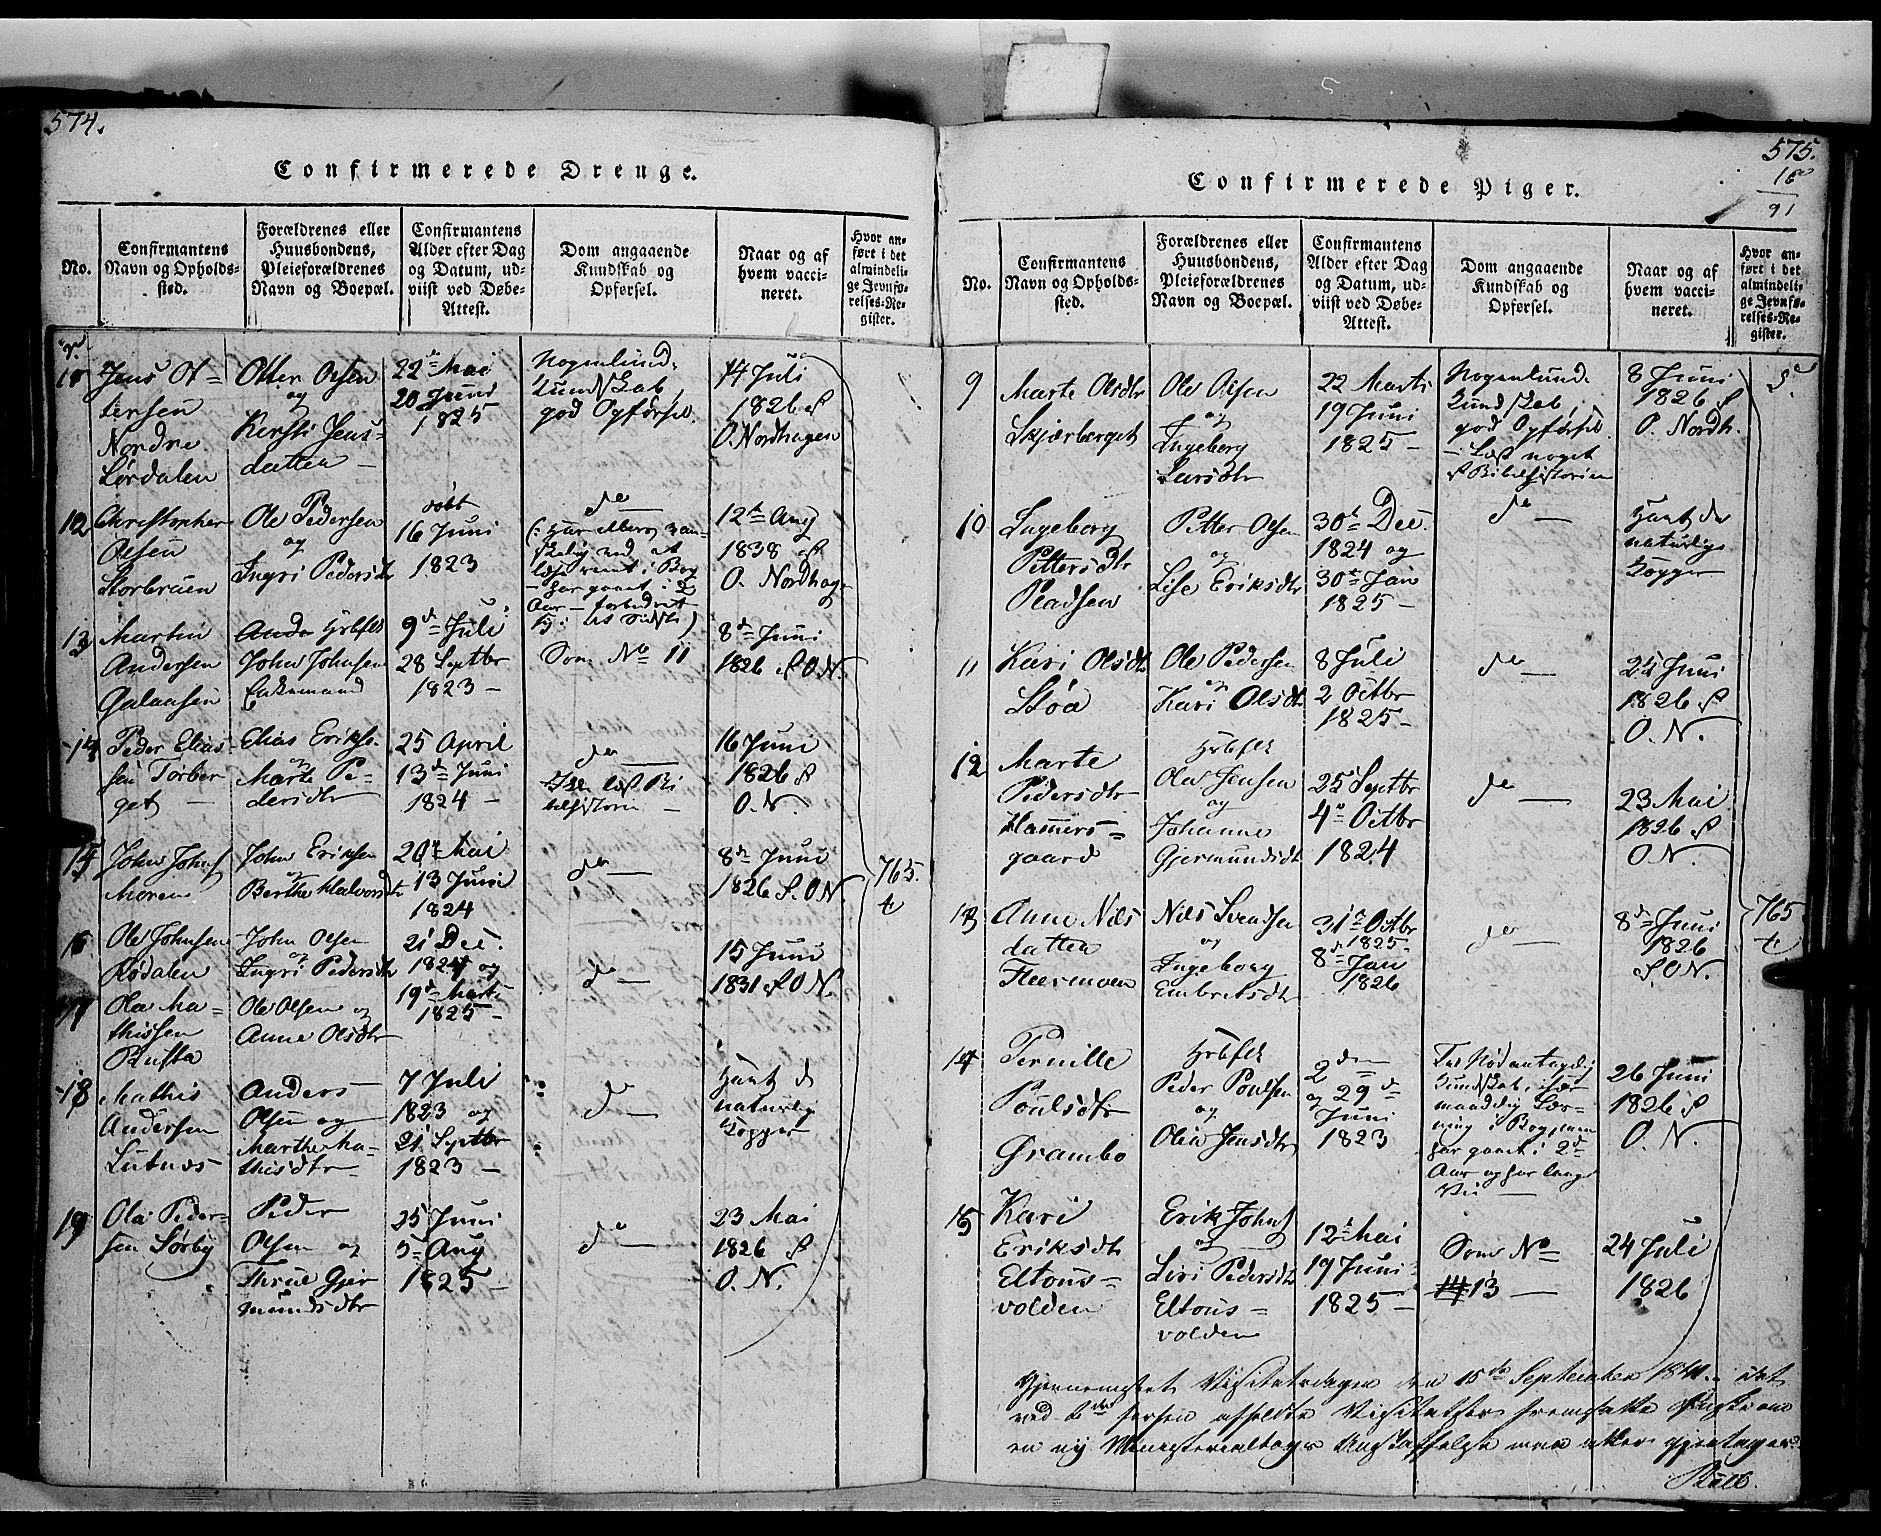 574.
Confirmerede Drenge.
No.
Confirmantens
Navn og Opholds-
sted.
Forældrenes eller
Huusbondens,
Pleieforældrenes
Navn og Boepæl.
Confirmantens
Alder efter Dag
og Datum, ud-
viist ved Døbe-
Attest.
Dom angaaende
Kundskab og
Opførsel.
Naar og af
hvem vacci-
neret.
Hvor an-
ført i det
almindeli-
ge Jevnfø-
relses-Re-
gister.
Jens Ot=
tersen
Nordre
Lørdalen
Otter Olsen
og
Kersti Jens-
datter
22de Mai
20 Juni
1825
Nogenlund.
Kundskab,
god Opførsel.
14 Juli
1826 af
O. Nordhagen
12
Christopher
Olsen
Storbrøen
Ole Pedersen
og
Ingri Pedersdtr
døbt
16 Juni
1823
do
12te Aug
1838 af
O. Nordhag
13
Martin
Andersen
Galaasen
John Johnsen
Enkemand
9de Juli
28 Septbr
1823
Som No 11
8de Juni
1826 af O. N.
14
Peder Elias-
sen Tørber
get
Elias Erikse.
og
Marte Pe-
dersdtr
25 April
13de Juni
1824
do
16 Juni
1826 af
O. N.
15
John Johns
Moren
John Eriksen
og
Berthe Halvorsdtr
20de Mai
13 Juni
1824
do
8de Juni
1826 af O. N.
765.
16
Ole Johnsen
Rødalen
John Olsen
og
Ingri Pedersdtr
21 Dec.
1824 og
19de Marts
1825
do
15 Juni
1831 af O. N.
17
Ola Ma=
thissen
Rusta
Ole Olsen og
Anne Olsdtr
18
Mathis
Andersen
Lutnæs
Anders
Olsen og
Marthe Ma-
thisdtr
7 Juli
1823 og
21 Septbr
1823
do
Havt de
naturlige
Kopper
19
Ola Peder-
sen Sørby
Peder
Olsen og
Thrue Gjer
mundsdtr
25 Juni
5te Aug
1825
do
23 Mai
1826 af
O. N.
575.
91
Confirmerede Piger.
No.
Confirmantens
Navn og Opholds-
sted.
Forældrenes eller
Huusbondens,
Pleieforældrenes
Navn og Boepæl.
Confirmantens
Alder efter Dag
og Datum, ud-
viist ved Døbe-
Attest.
Dom angaaende
Kundskab og
Opførsel.
Naar og af
hvem vacci-
neret.
Hvor an-
ført i det
almindeli-
ge Jevnfø-
relses-Re-
gister.
9
Marte Olsdtr
Skjærberget
Ole Olsen
og
Ingeborg
Larsdtr
22 Marts
19 Juni
1825
Nogenlund.
Kundskab,
god Opførsel
Læst noget
af Bibelhistorien
8 Juni
1826 af
O. Nordh.
10
Ingeborg
Pettersdtr
Pladsen
Petter Olsen
og
Lise Eriksdtr
30te Dec.
1824 og
30te Jan
1825
do
Havt de
naturlige
Kopper
11
Kari Olsdtr
Støa
Ole Pedersen
og
Kari Olsdtr
8 Juli
2 Octbr
1825
do
24 Juni
1826 af
O. N.
12
Marte
Pedersdtr
Hammers=
gaard
Ola Jensen
og
Johanne
Gjermundsdtr
25 Septbr
4de Octbr
1824
do
23 Mai
1826 af
O. N.
13
Anne Nils
datter
Flermoen
Nils Svendsen
og
Ingeborg
Embretsdtr
31te Octbr
1825
8de Jan
1826
do
8de Juni
1826
af O. N.
765
14
Pernille
Poulsdtr
Ørambo
Peder Poulsen
og
Olia Jensdtr
2den
og 29de
Juni
1823
har gaaet i 2de
Aar og har lang
Vei
26 Juni
1826 af
O. N.
15
Kari
Eriksdtr
Eltons=
volden
Erik Johns
og
Siri Pedersdtr
Eltons=
volden
12te Mai
19 Juni
1825
Som No
13
24 Juli
1826
Gjennemseet Visitatsdagen den 15de September 1841.